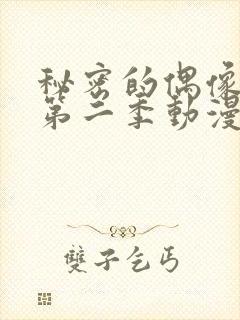 秘密的偶像
第二季動漫
雙子乞丐